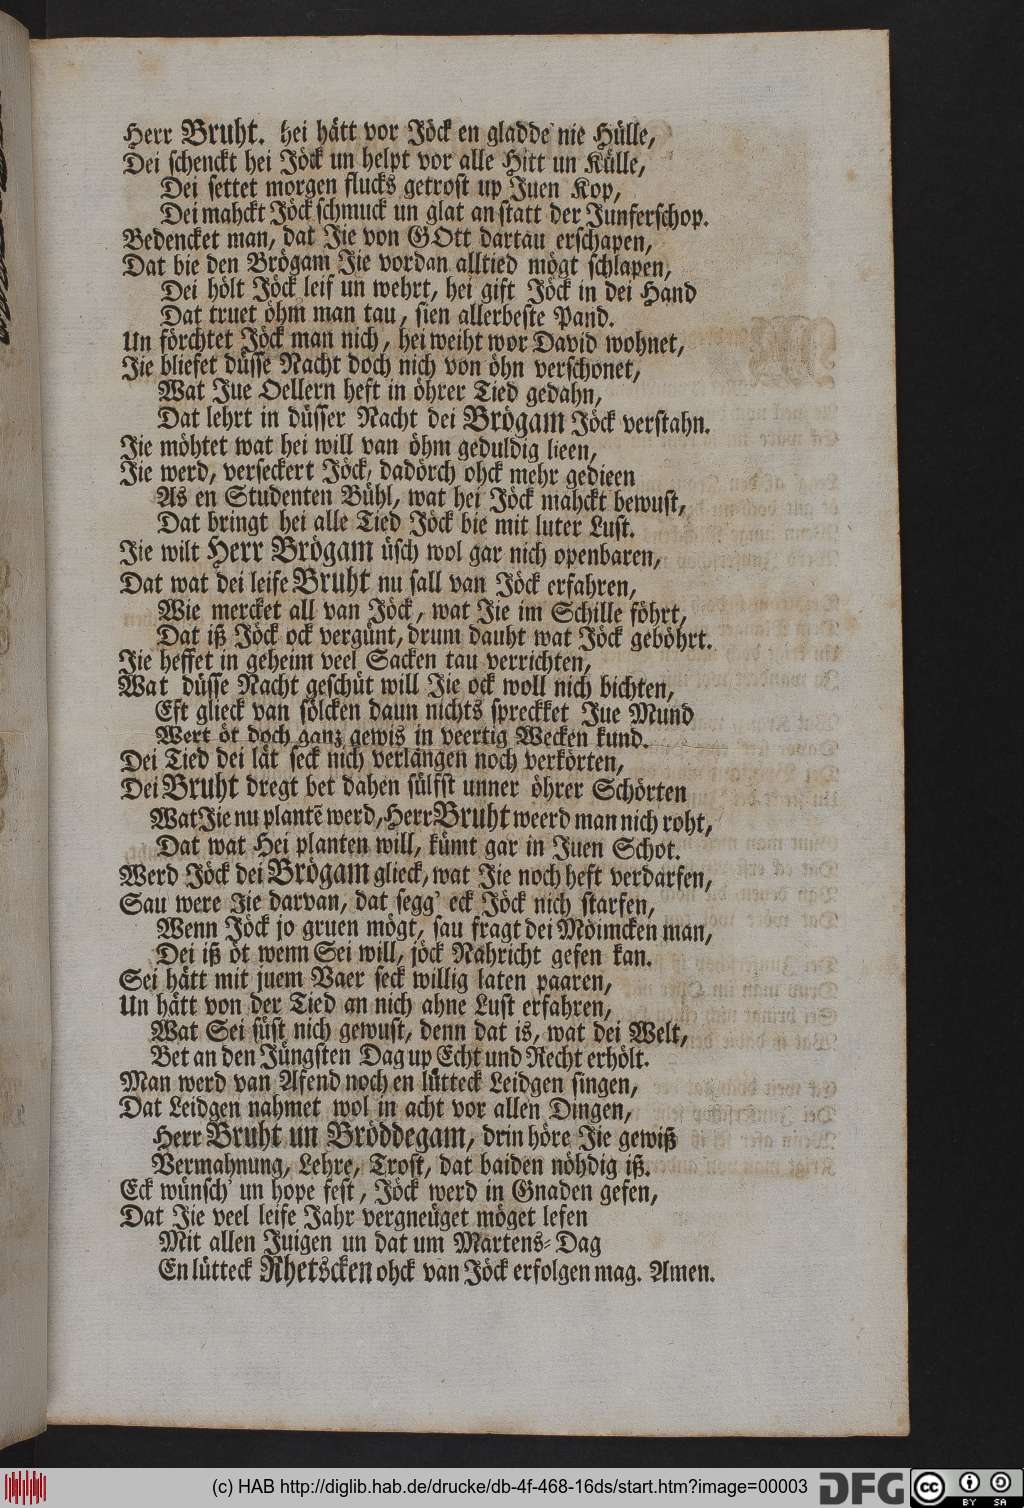 Herr Bruht. hei hätt vor Jöck en gladde nie Hülle,
Dei schenckt hei Jöck un helpt vor alle Hitt un Külle,
Dei settet morgen flucks getrost up Juen Kop,
Dei mahckt Jöck schmuck un glat an statt der Junferschop.
Bedencket man, dat Jie von GOtt dartau erschapen,
Dat bie den Brögam Jie vordan alltied mögt schlapen,
Dei hölt Jöck leif un wehrt, hei gift Jöck in dei Hand
Dat truet öhm man tau, sien allerbeste Pand.
Un förchtet Jöck man nich, hei weiht wor David wohnet,
Jie bliefet düsse Nacht doch nich von öhn verschonet,
Wat Jue Oellern heft in öhrer Tied gedahn,
Dat lehrt in düsser Nacht dei Brögam Jöck verstahn.
Jie möhtet wat hei will van öhm geduldig lieen,
Jie werd, verseckert Jöck, dadörch ohck mehr gedieen
As en Studenten Bühl, wat hei Jöck mahckt bewust,
Dat bringt hei alle Tied Jöck bie mit luter Lust.
Jie wilt Herr Brögam üsch wol gar nich openbaren,
Dat wat dei leife Bruht nu sall van Jöck erfahren,
Wie mercket all van Jöck, wat Jie im Schille föhrt,
Dat iß Jöck ock vergünt, drum dauht wat Jöck geböhrt.
Jie heffet in geheim veel Sacken tau verrichten,
Wat düsse Nacht geschüt will Jie ock woll nich bichten,
Eft glieck van sölcken daun nichts spreckket Jue Mund
Wert öt doch ganz gewis in veertig Wecken kund.
Dei Tied dei lät seck nich verlängen noch verkörten,
Dei Bruht dregt bet dahen sülfst unner öhrer Schörten
Wat Jie nu plantẽ werd, Herr Bruht weerd man nich roht,
Dat wat Hei planten will, kümt gar in Juen Schot.
Werd Jöck dei Brögam glieck, wat Jie noch heft verdarfen,
Sau were Jie darvan, dat segg' eck Jöck nich starfen,
Wenn Jöck jo gruen mögt, sau fragt dei Möimcken man,
Dei iß öt wenn Sei will, jöck Nahricht gefen kan.
Sei hätt mit juem Vaer seck willig laten paaren,
Un hätt von der Tied an nich ahne Lust erfahren,
Wat Sei süst nich gewust, denn dat is, wat dei Welt,
Bet an den Jüngsten Dag up Echt und Recht erhölt.
Man werd van Afend noch en lütteck Leidgen singen,
Dat Leidgen nahmet wol in acht vor allen Dingen,
Herr Bruht un Bröddegam, drin höre Jie gewiß
Vermahnung, Lehre, Trost, dat baiden nöhdig iß.
Eck wünsch' un hope fest, Jöck werd in Gnaden gefen,
Dat Jie veel leife Jahr vergneüget möget lefen
Mit allen Juigen un dat um Martens-Dag
En lütteck Rhetscken ohck van Jöck erfolgen mag. Amen.
(c) HAB http://diglib.hab.de/drucke/db-4f-468-16ds/start.htm?image=00003
DFG
cc BY SA